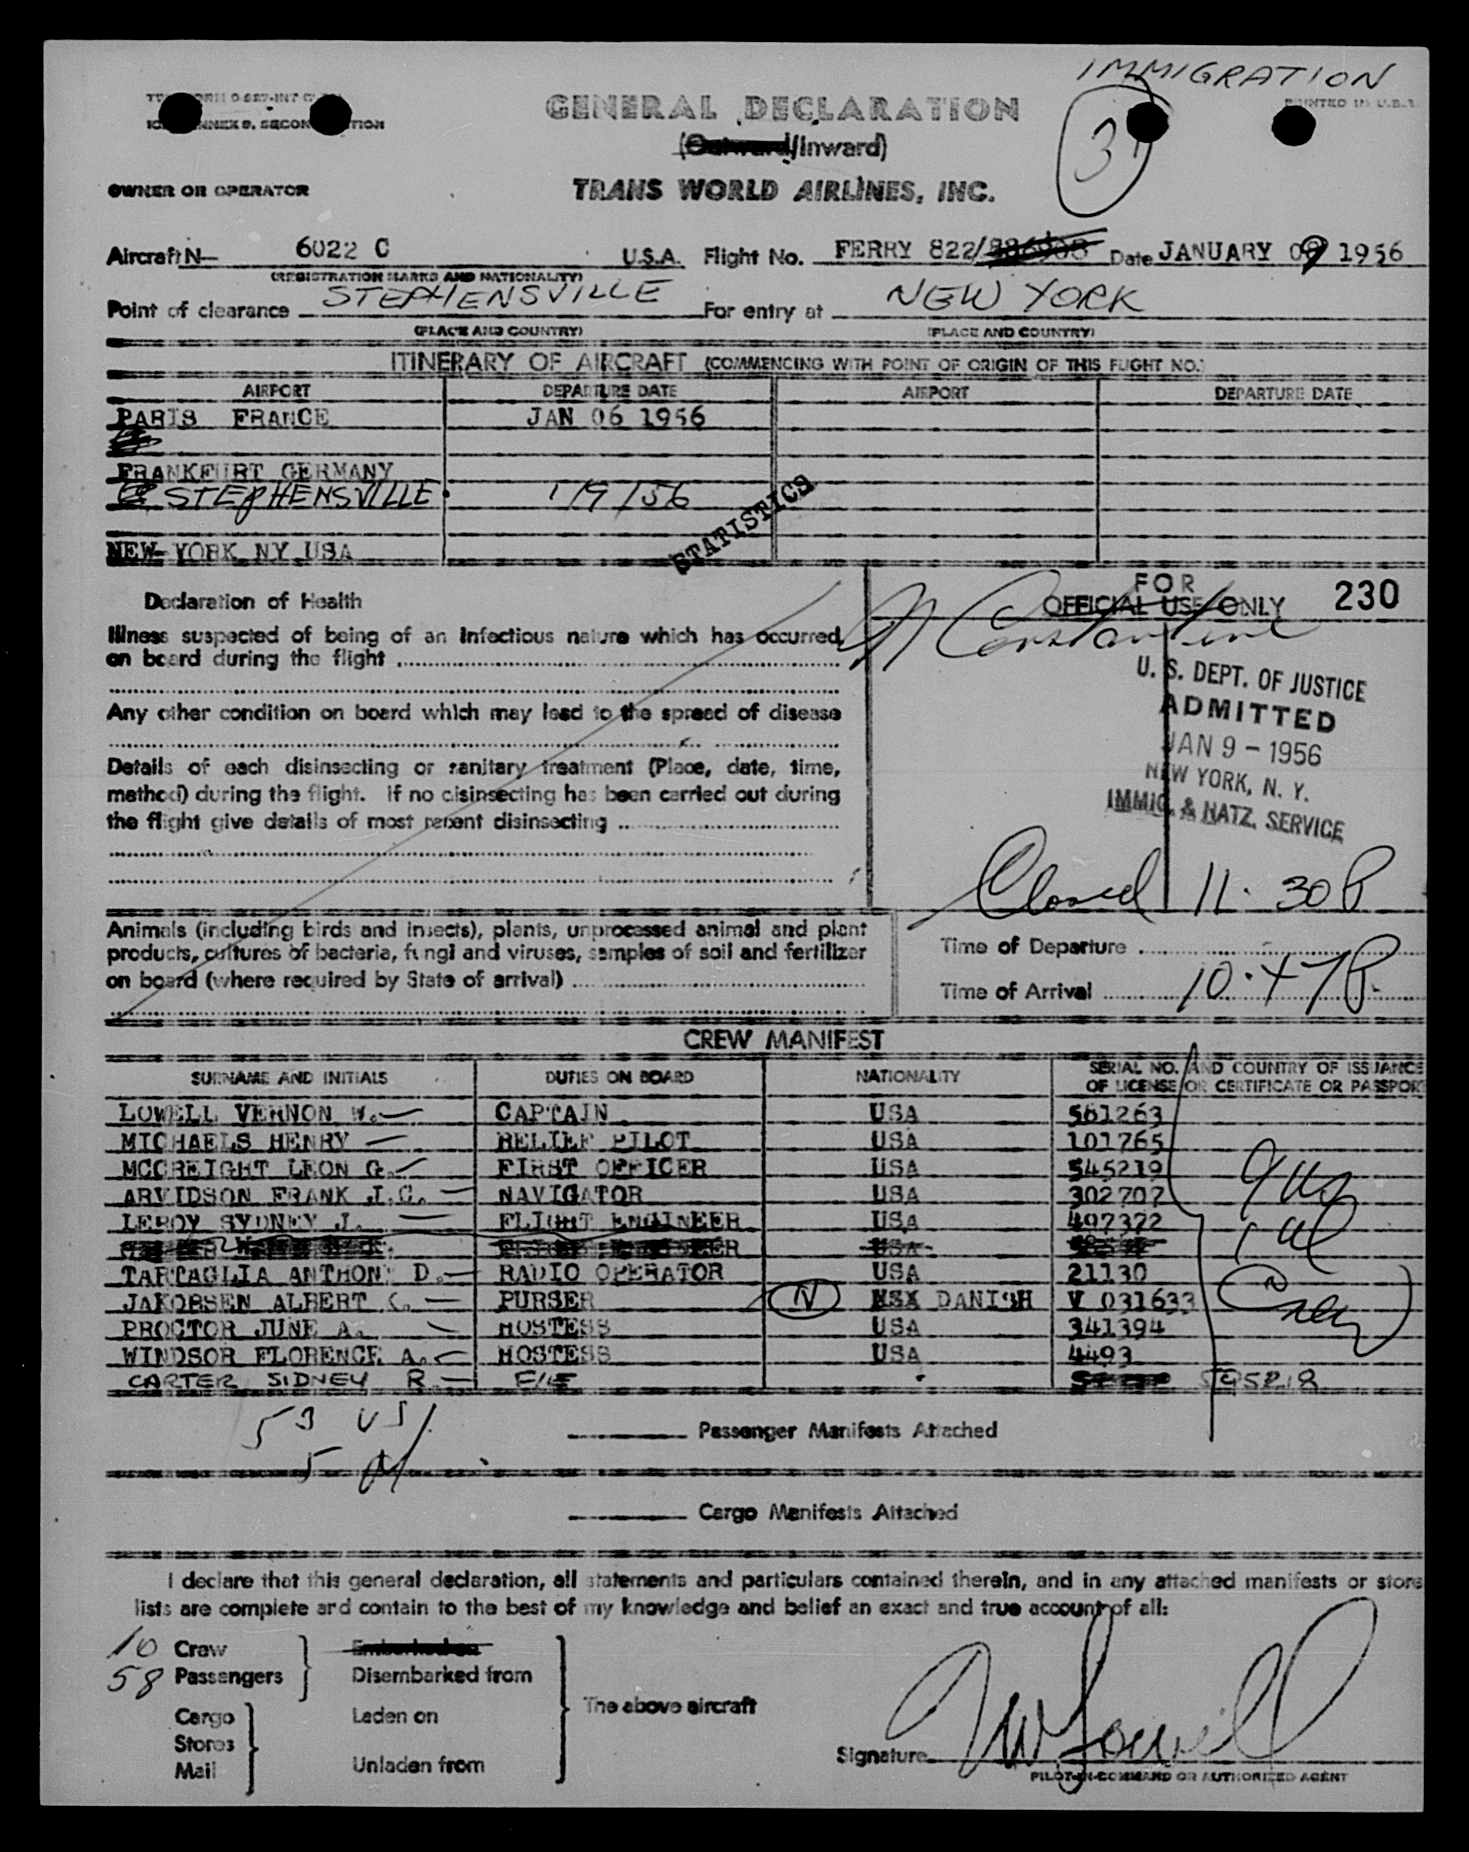 IMMIGRATION
GENERAL DECLARATION
PRINTED IN U.S.A.
(Outward/Inward)
3
OWNER OR OPERATOR
TRANS WORLD AIRLINES, INC.
Aircraft N— 6022 C U.S.A. Flight No. FERRY 822/ Date JANUARY 09 1956
(REGISTRATION MARKS AND NATIONALITY)
Point of clearance STEPHENSVILLE For entry at NEW YORK
(PLACE AND COUNTRY) (PLACE AND COUNTRY)
ITINERARY OF AIRCRAFT (COMMENCING WITH POINT OF ORIGIN OF THIS FLIGHT NO.)
AIRPORT DEPARTURE DATE AIRPORT DEPARTURE DATE
PARIS FRANCE JAN 06 1956
FRANKFURT GERMANY
STEPHENSVILLE 1/9/56
STATISTICS
NEW YORK NY USA
FOR
OFFICIAL USE ONLY 230
Declaration of Health
Illness suspected of being of an infectious nature which has occurred
on board during the flight
Any other condition on board which may lead to the spread of disease
Details of each disinsecting or sanitary treatment (Place, date, time,
method) during the flight. If no disinsecting has been carried out during
the flight give details of most recent disinsecting
N Constantine
U. S. DEPT. OF JUSTICE
ADMITTED
JAN 9 - 1956
NEW YORK, N. Y.
IMMIG. & NATZ. SERVICE
Closed 11.30 P
Animals (including birds and insects), plants, unprocessed animal and plant
products, cultures of bacteria, fungi and viruses, samples of soil and fertilizer
on board (where required by State of arrival)
Time of Departure
Time of Arrival 10.47 P.
CREW MANIFEST
SURNAME AND INITIALS DUTIES ON BOARD NATIONALITY SERIAL NO. AND COUNTRY OF ISSUANCE
OF LICENSE OR CERTIFICATE OR PASSPORT
LOWELL VERNON W. CAPTAIN USA 561263
MICHAELS HENRY RELIEF PILOT USA 101765
MCCREIGHT LEON G. FIRST OFFICER USA 545219
ARVIDSON FRANK J.C. NAVIGATOR USA 302707
LEROY SYDNEY J. FLIGHT ENGINEER USA 497372
USA
TARTAGLIA ANTHONY D. RADIO OPERATOR USA 21130
JAKOBSEN ALBERT K. PURSER N DANISH V 031633
PROCTOR JUNE A. HOSTESS USA 341394
WINDSOR FLORENCE A. HOSTESS USA 4493
CARTER SIDNEY R. F/E 595218
53 US
5
Passenger Manifests Attached
Cargo Manifests Attached
I declare that this general declaration, all statements and particulars contained therein, and in any attached manifests or store
lists are complete and contain to the best of my knowledge and belief an exact and true account of all:
10 Crew Embarked on
58 Passengers Disembarked from
The above aircraft
Cargo Laden on
Stores
Mail Unladen from
Signature VW Lowell
PILOT-IN-COMMAND OR AUTHORIZED AGENT